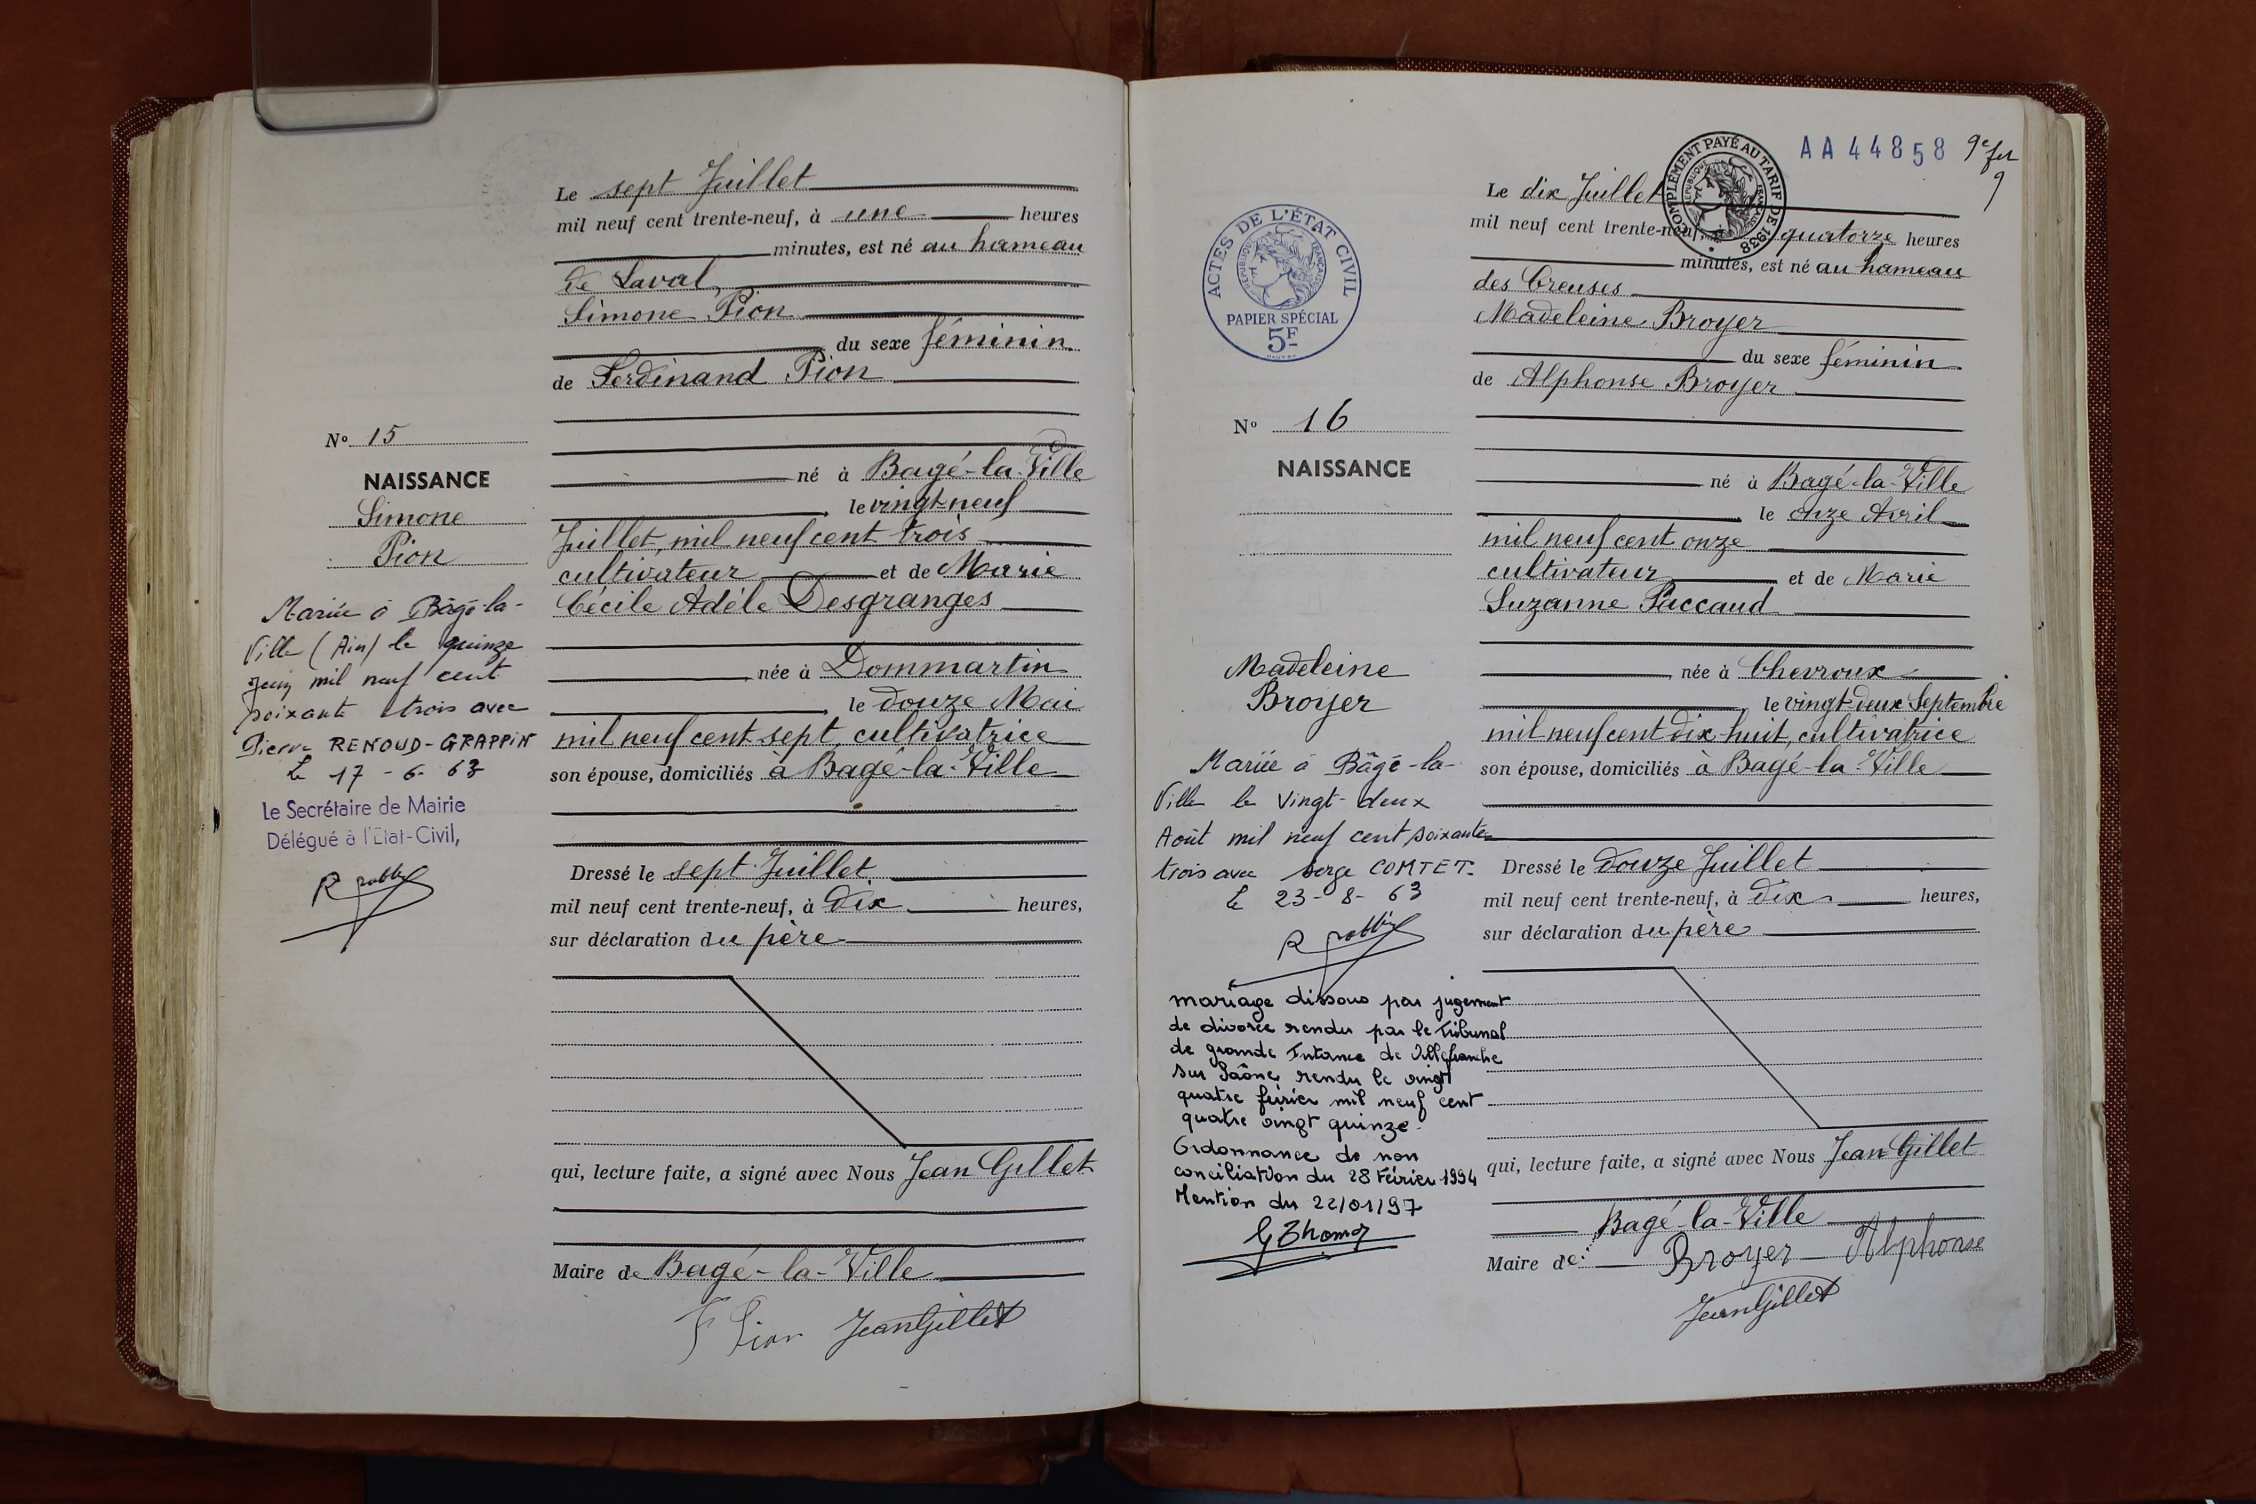 Le sept Juillet
mil neuf cent trente-neuf, à une heures
minutes, est né au hameau
de Laval,
Simone Pion
du sexe féminin
de Ferdinand Pion
né à Bagé-la-Ville
le vingt-neuf
Juillet, mil neuf cent trois
cultivateur et de Marie
Cécile Adèle Desgranges
née à Dommartin
le douze Mai
mil neuf cent sept, cultivatrice
son épouse, domiciliés à Bagé-la-Ville
Dressé le sept Juillet
mil neuf cent trente-neuf, à dix heures,
sur déclaration du père
qui, lecture faite, a signé avec Nous Jean Gillet
Maire de Bagé-la-Ville
F Pion Jean Gillet
No 15
NAISSANCE
Simone
Pion
Mariée à Bâgé-la-
Ville (Ain) le quinze
juin mil neuf cent
soixante trois avec
Pierre RENOUD-GRAPPIN
Le 17-6-63
Le Secrétaire de Mairie
Délégué à l'Etat-Civil,
AA44858
9e
9
COMPLÉMENT PAYÉ AU TARIF DE 1938
ACTES DE L'ÉTAT CIVIL
RÉPUBLIQUE FRANÇAISE
PAPIER SPÉCIAL
5F
Le dix Juillet
mil neuf cent trente-neuf, à quatorze heures
minutes, est né au hameau
des Creuses
Madeleine Broyer
du sexe féminin
de Alphonse Broyer
né à Bagé-la-Ville
le onze Avril
mil neuf cent onze
cultivateur et de Marie
Suzanne Paccaud
née à Chevroux
le vingt-deux Septembre
mil neuf cent dix-huit, cultivatrice
son épouse, domiciliés à Bagé-la-Ville
Dressé le douze Juillet
mil neuf cent trente-neuf, à dix heures,
sur déclaration du père
qui, lecture faite, a signé avec Nous Jean Gillet
Bagé-la-Ville
Maire de: Broyer Alphonse
Jean Gillet
No 16
NAISSANCE
Madeleine
Broyer
Mariée à Bâgé-la-
Ville le vingt-deux
Août mil neuf cent soixante
trois avec Serge COMTET.
Le 23-8-63
mariage dissous par jugement
de divorce rendu par le Tribunal
de grande Intance de Villefranche
sur Saône rendu le vingt
quatre février mil neuf cent
quatre vingt quinze.
Ordonnance de non
conciliation du 28 Février 1994
Mention du 22/01/97